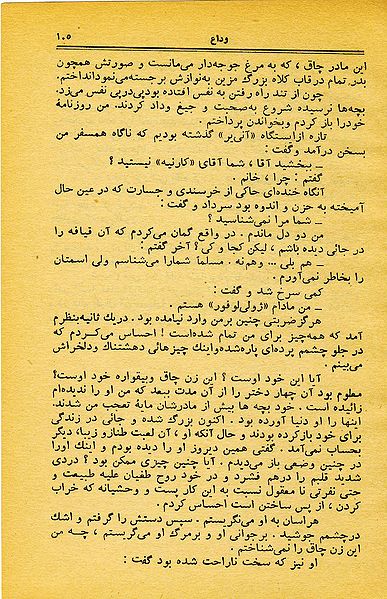 وداع
۱۰۵
این مادر چاق ، که به مرغ جوجه‌دار می‌مانست و صورتش همچون
بدر تمام در قاب کلاه بزرگ مزین به‌نوازش برجسته‌می‌نمود‌انداختم.
چون از تند راه رفتن به نفس افتاده بود‌پی‌درپی نفس می‌زد.
بچه‌ها نرسیده شروع به‌صحبت و جیغ وداد کردند. من روزنامهٔ
خودرا باز کردم وبخواندن پرداختم.
تازه ازایستگاه «آنی‌یر» گذشته بودیم که ناگاه همسفر من
بسخن درآمد وگفت :
ــ ببخشید آقا ، شما آقای «کارنیه» نیستید ؟
گفتم : چرا ، خانم .
آنگاه خنده‌ای حاکی از خرسندی و جسارت که در عین حال
آمیخته به حزن و اندوه بود سرداد و گفت :
ــ شما مرا نمی‌شناسید ؟
من دو دل ماندم . در واقع گمان می‌کردم که آن قیافه را
در جائی دیده باشم ، لیکن کجا و کی؟ آخر گفتم :
ــ هم بلی ... وهم‌نه . مسلماً شمارا می‌شناسم ولی اسمتان
را بخاطر نمی‌آورم .
کمی سرخ شد و گفت :
ــ من مادام «ژولی‌لوفور» هستم .
هرگز ضربتی چنین برمن وارد نیامده بود . دریك ثانیه‌بنظرم
آمد که همه‌چیز برای من تمام شده‌است ! احساس می‌کردم که
در جلو چشمم پرده‌ای پاره‌شده‌واینك چیزهائی دهشتناك ودلخراش
می‌بینم .
آیا این خود اوست ؟ این زن چاق وبیقواره خود اوست؟
معلوم بود آن چهار دختر را از آن مدت ببعد که من او را ندیده‌ام
زائیده است . خود بچه ها بیش از مادرشان مایهٔ تعجب من شدند.
اینها را او دنیا آورده بود . اکنون بزرگ شده و جائی در زندگی
برای خود بازکرده بودند و حال آنکه او ، آن لعبت طناز‌و زیبا، دیگر
بحساب نمی‌آمد . گفتی همین دیروز او را دیده بودم و اینك اورا
در چنین وضعی باز می‌دیدم . آیا چنین چیزی ممکن بود ؟ دردی
شدید قلبم را درهم فشرد و در خود روح طغیان علیه طبیعت و
حتی نفرتی نا معقول نسبت به این کار پست و وحشیانه که خراب
کردن ، از پس ساختن است احساس کردم .
هراسان به او می‌نگریستم . سپس دستش را گرفتم و اشك
درچشمم جوشید . برجوانی او و برمرگ او می‌گریستم ، چه من
این زن چاق را نمی‌شناختم .
او نیز که سخت ناراحت شده بود گفت :